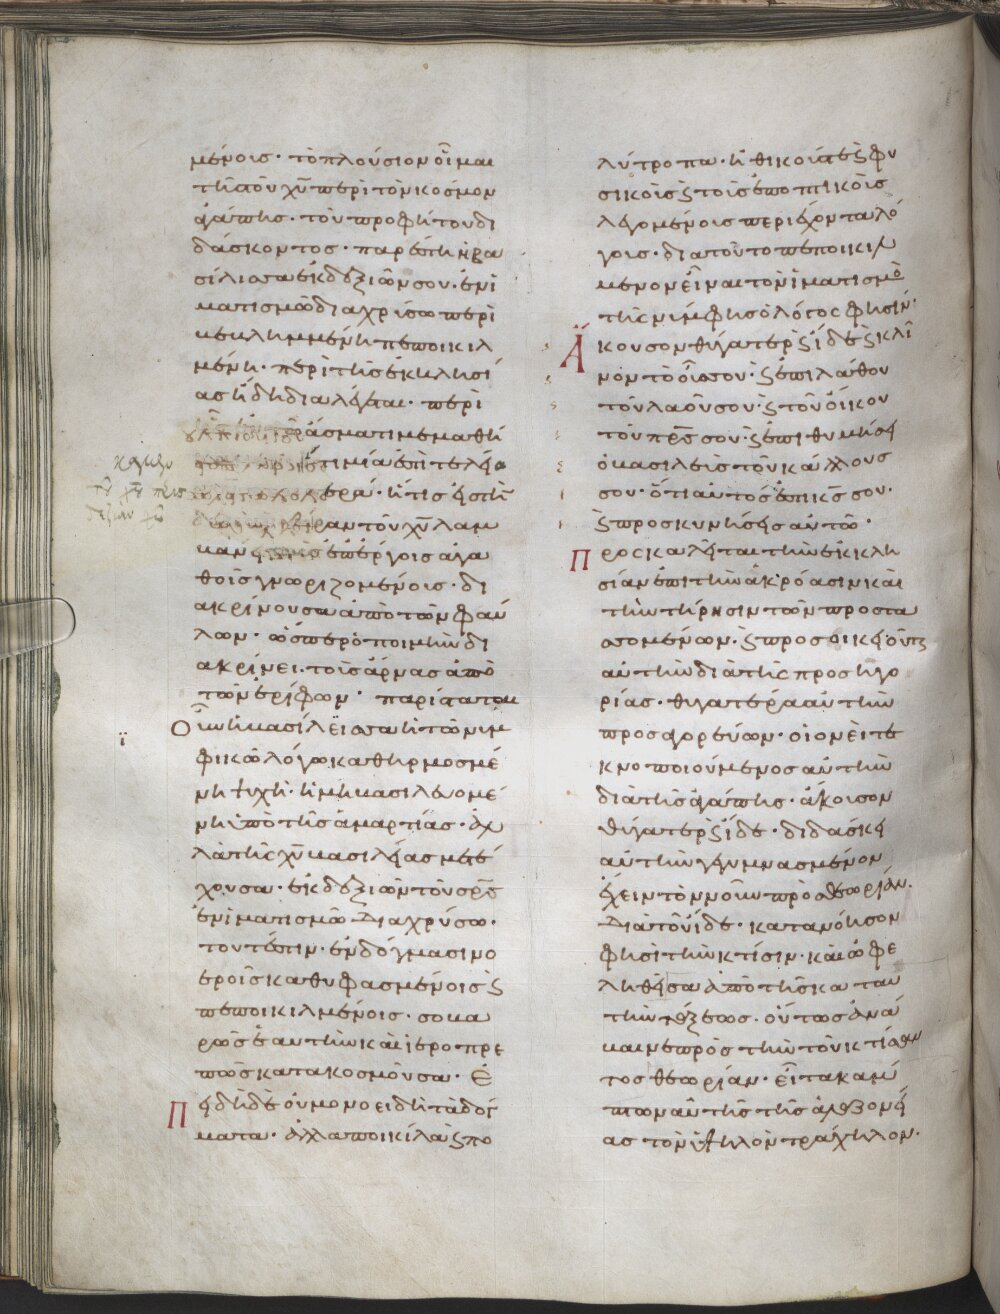 μένοις· τὸ πλούσιον οἶμαι
τῆς τοῦ χῦ περὶ τὸν κόσμον
ἀγάπης. τοῦ προφήτου δι
δάσκοντος· παρέστη ἡ βα
σίλισσα ἐκ δεξιῶν σου· ἐν ἱ
ματισμῶ διαχρύσω περι
βεβλημμένη πεποικιλ
μένη. περὶ τῆς ἐκκλησί
ας ἤδη διαλέγεται. περὶ
ἄσματι μεμαθή
μία ἐστὶ τελεία
ἡτίς ἐστὶ
αυτὸν χῦ λαμ
βάνει ἐπ᾽ ἔργοις ἀγα
θοῖς γνωριζομένοις. δι
ακρίνουσα ἀπὸ τῶν φαύ
λων· ὥσπερ ὁ ποιμὴν δι
ακρίνει· τοὺς ἄρνας ἀπὸ
τῶν ἐρίφων· παρίσταται
οὖν ἡ βασίλεισσα ἡ τῶ νυμ
φικῶ λόγω καθηρμοσμέ
νη ψυχὴ· ἡ μὴ βασιλευομέ
νη ὑπὸ τῆς ἁμαρτίας· ἀλ
λὰ τῆς χῦ βασιλείας μετέ
χουσα· ἐκ δεξιῶν τοῦ σρς
ἐν ἱματισμῶ διαχρύσω·
τουτέστιν· ἐν δόγμασι νο
εροῖς καθυφασμένοις ϗ
πεποικιλμένοις. σοβα
ρῶς ἑαυτὴν καὶ ἱεροπρε
πῶς κατακοσμοῦσα· Ἐ
Πειδὴ δὲ οὐ μονοειδῆ τὰ δόγ
ματα· ἀλλὰ ποικίλα ϗ πο
λύτροπα· ἠθικοῖς τε ϗ φυ
σικοῖς ϗ τοῖς ἐποπτικοῖς
λεγομένοις περιέχοντα λό
γοις· διατοῦτο πεποικιλ
μένον εἶναι τὸν ἱματισμὸ
τῆς νύμφης ὁ λόγος φησίν·
Ἄκουσον θύγατερ ϗ ἴδε ϗ κλῖ
νον τὸ οὖς σου· ϗ ἐπιλάθου
τοῦ λαοῦ σου· ϗ τοῦ οἴκου
τοῦ πρς σου· ϗ ἐπιθυμήσει
ὁ βασιλεὺς τοῦ κάλλους
σου· ὅτι αὐτός ἐστι κς σου·
ϗ προσκυνήσεις αὐτῶ·
Προσκαλεῖται τὴν ἐκκλη
σίαν ἐπὶ τὴν ἀκρόασιν καὶ
τὴν τήρησιν τῶν προστα
σσομένων· ϗ προσοικειοῦται
αὐτὴν διὰ τῆς προσηγο
ρίας· θυγατέρα αὐτὴν
προσαγορεύων· οἱονεὶ τε
κνοποιούμενος αὐτὴν
διὰ τῆς ἀγάπης· ἄκουσον
θύγατερ ϗ ἴδε· διδάσκει
αὐτὴν γεγυμνασμένον
ἔχειν τὸν νοῦν πρὸς θεωρίαν·
διὰ τοῦ ἴδε· κατανόησον
φησὶ τὴν κτίσιν· καὶ ὠφε
ληθεῖσα ἀπὸ τῆς κατ᾽ αὐ
τὴν τάξεως· οὕτως ἀνά
βαινε πρὸς τὴν τοῦ κτίσαν
τος θεωρίαν· εἶτα κάμ
πτων αὐτῆς τῆς ἀλαζονεί
ας τὸν ὑψηλὸν τράχηλον·